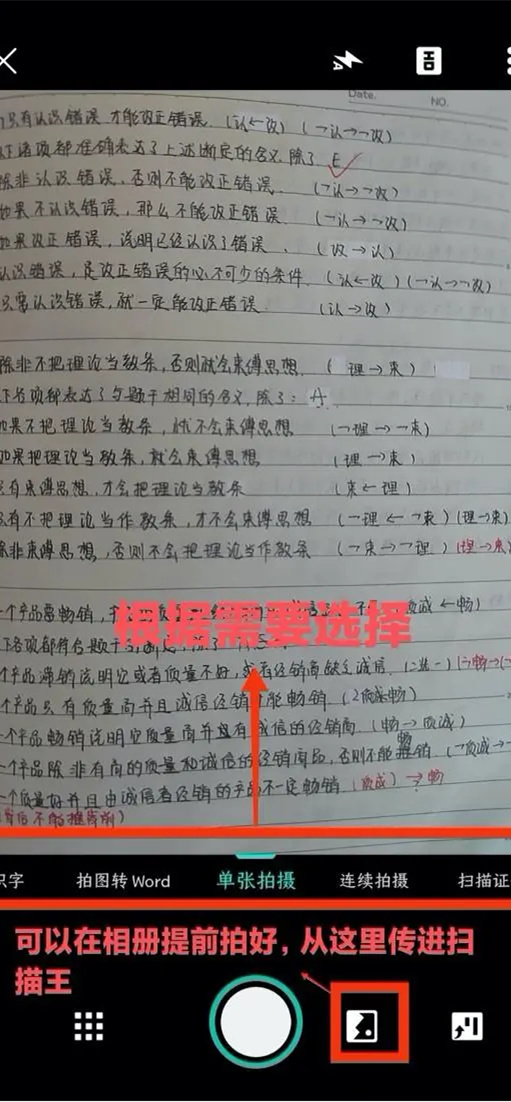 Date.
NO.
只有认识错误 才能改正错误. (认←改) (¬认→¬改)
下诸项都准确表达了上述断定的含义.除了 E
除非认识错误,否则不能改正错误. (¬认→¬改)
如果不认识错误,那么不能改正错误. (¬认→¬改)
如果改正错误,说明已经认识了错误. (改→认)
认识错误,是改正错误的必不可少的条件. (认←改) (¬认→¬改)
只要认识错误,就一定能改正错误. (认→改)
除非不把理论当教条,否则就会束缚思想. ( 理→束)
下各项都表达了与题干相同的含义,除了: A
如果不把理论当教条,就不会束缚思想 (¬理→¬束)
如果把理论当教条,就会束缚思想 (理→束)
只有束缚思想,才会把理论当教条 (束←理)
只有不把理论当作教条,才不会束缚思想 (¬理←¬束) (理→束)
除非束缚思想,否则不会把理论当作教条 (¬束→¬理) (理→束)
一个产品要畅销, 质诚←畅)
根据需要选择
下各项都符合题干
个产品滞销说明它或者质量不好,或者经销商缺乏诚信.
个产品只有质量高并且诚信经销才能畅销
个产品畅销说明它质量高并且有诚信的经销商. (畅→质诚)
一个产品除非有高的质量和诚信的经销商,否则不能畅销
一个质量好并且由诚信者经销的产品不一定畅销
识字
拍图转Word
单张拍摄
连续拍摄
扫描证
可以在相册提前拍好,从这里传进扫
描王